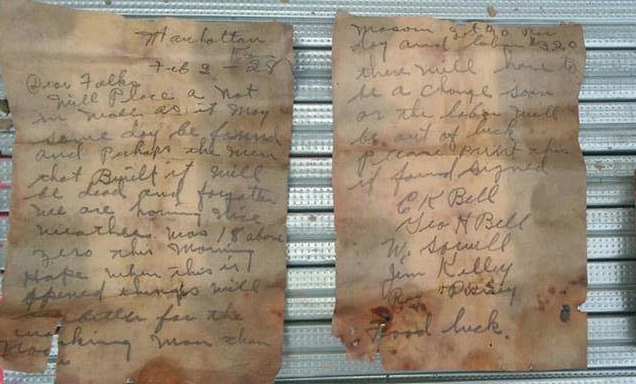 Manhattan
Feb 2 - 28
Dear Folks
Will Place a Not
in wall as it May
some day be found
and Perhaps the men
that Built it will
be dead and forgotten
we are having nice
weather was 18 above
zero this Morning
Hope when this is
opened things will
better for the
working man than
Mason
day and labor
there will have to
be a change soon
or the labor will
be out of luck
Please print this
if found signed
C K Bell
Geo H Bell
W. Sowell
Jim Kelley
Good luck.